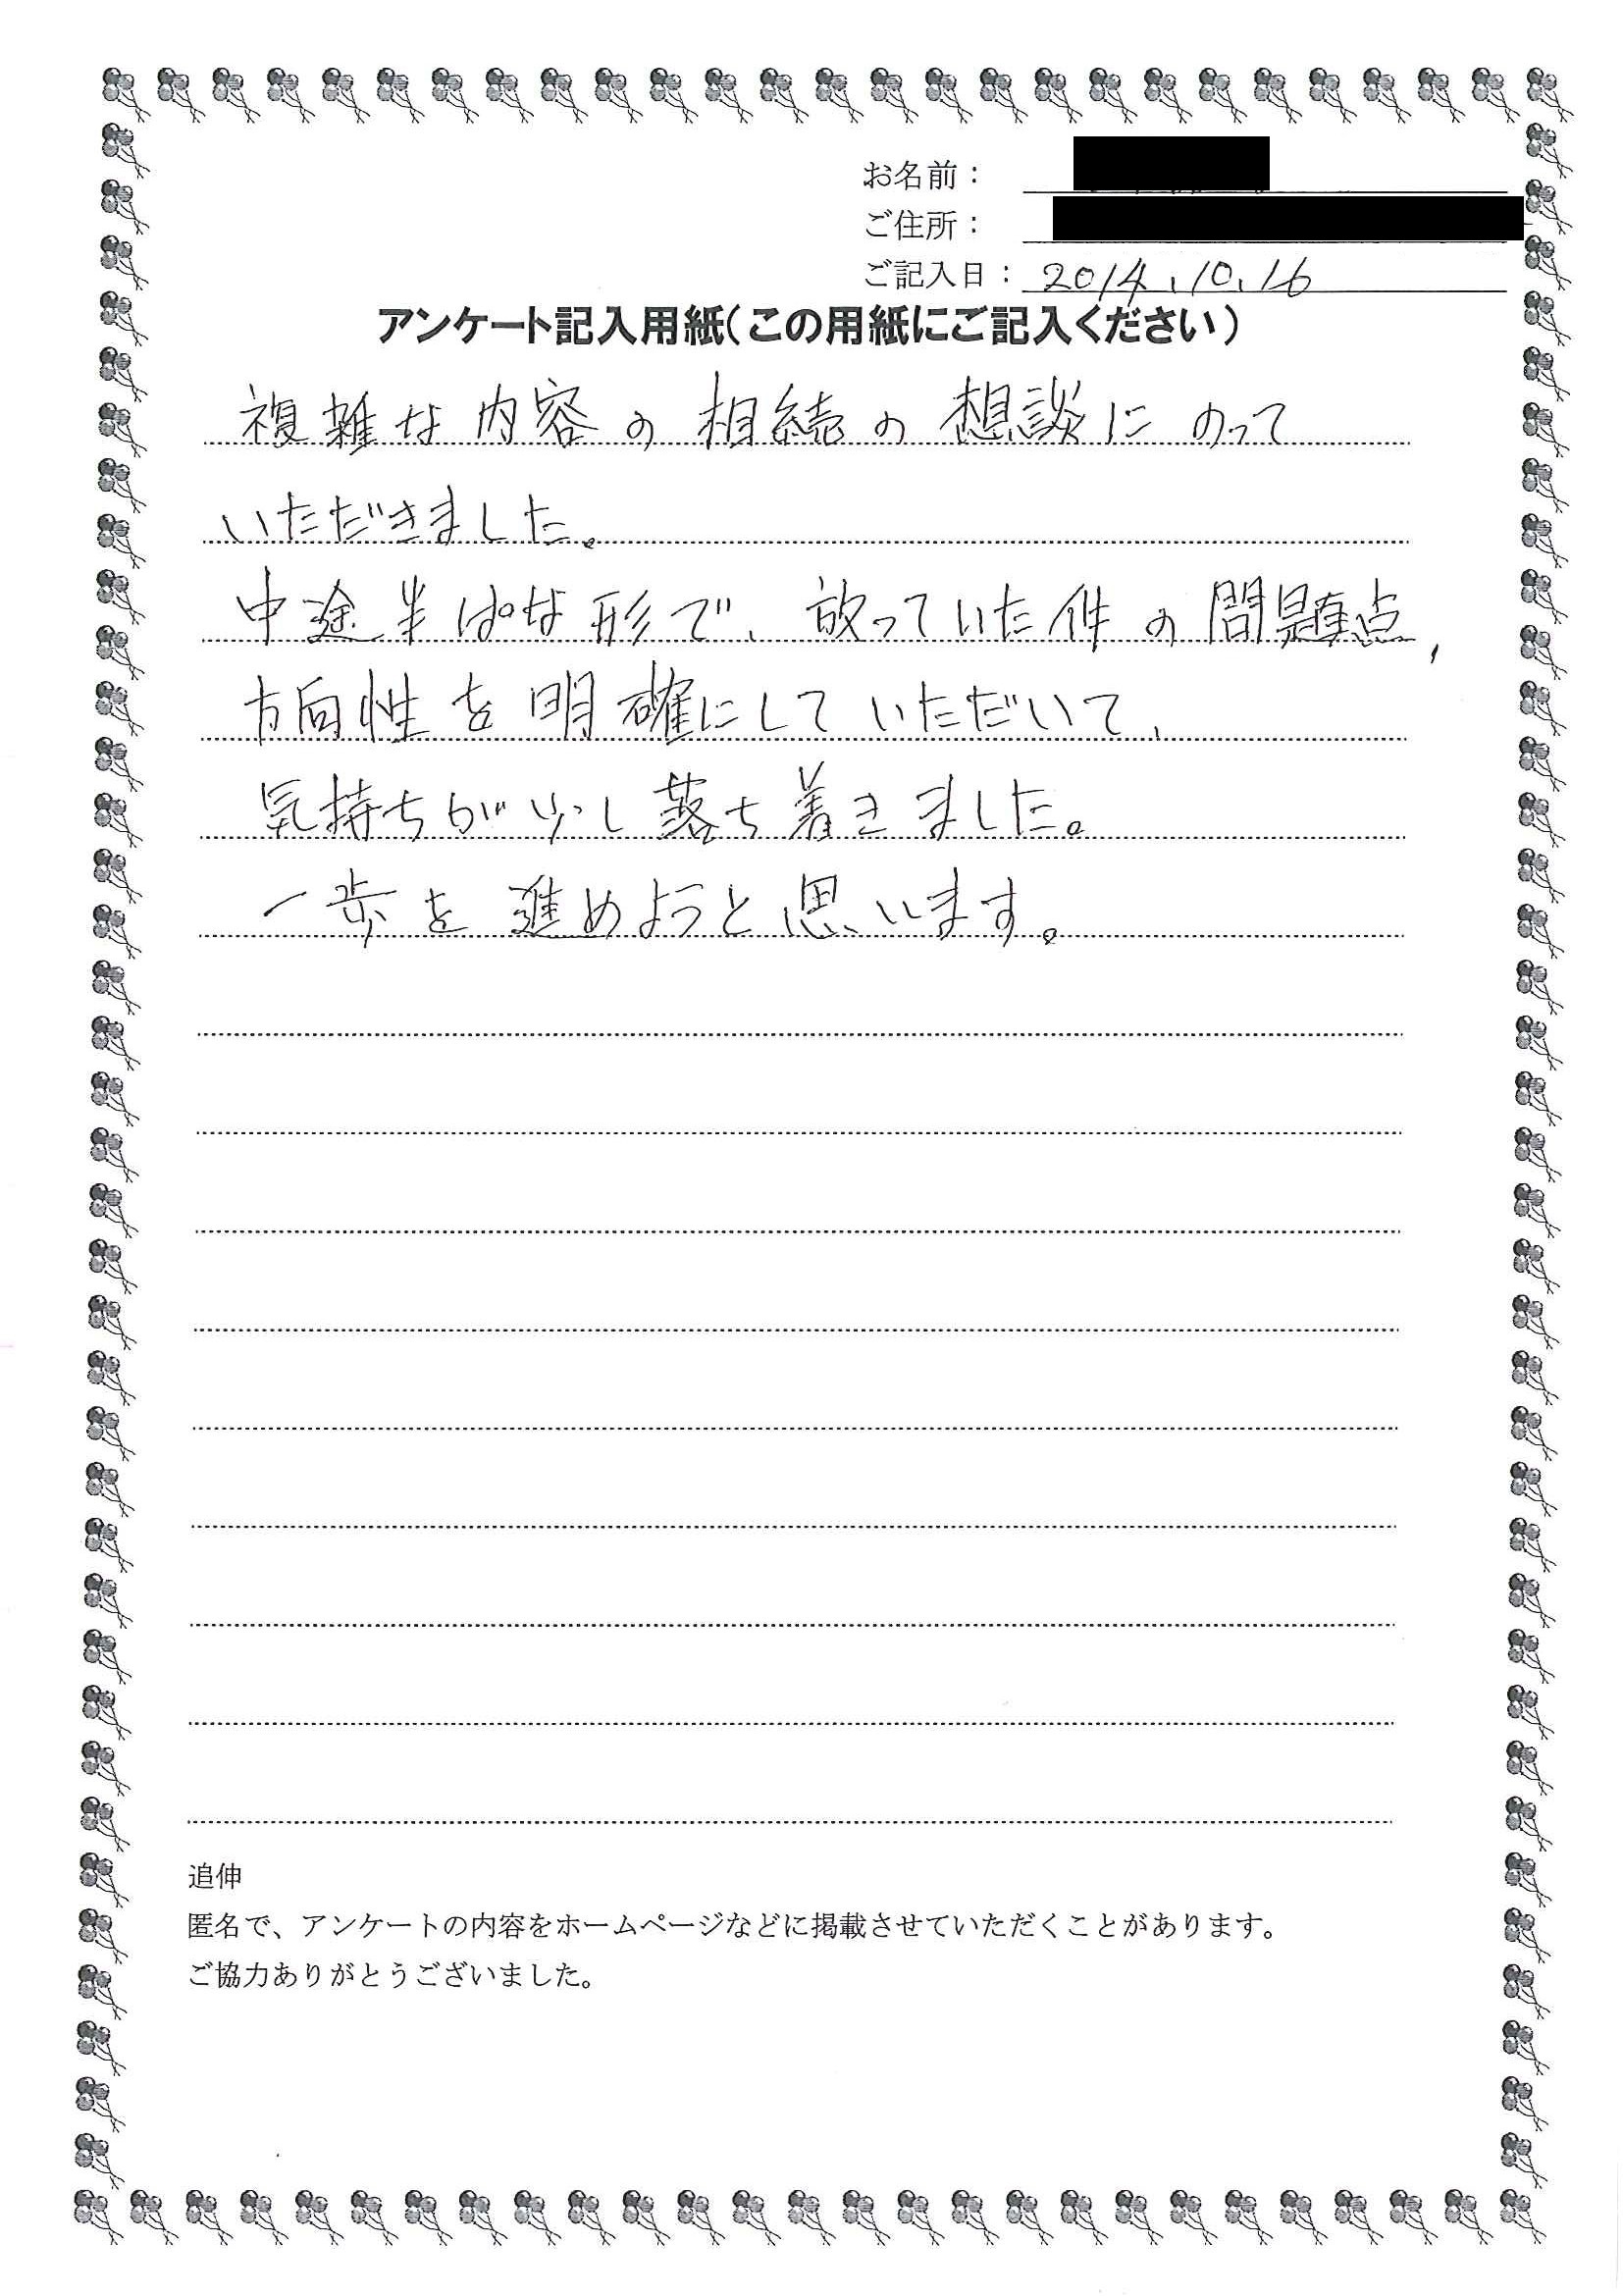 お名前：
ご住所：
ご記入日：2014.10.16
アンケート記入用紙(この用紙にご記入ください)
複雑な内容の相続の想談にのって
いただきました。
中途半ぱな形で、放っていた件の問題点,
方向性を明確にしていただいて、
気持ちが少し落ち着きました。
一歩を進めようと思います。
追伸
匿名で、アンケートの内容をホームページなどに掲載させていただくことがあります。
ご協力ありがとうございました。